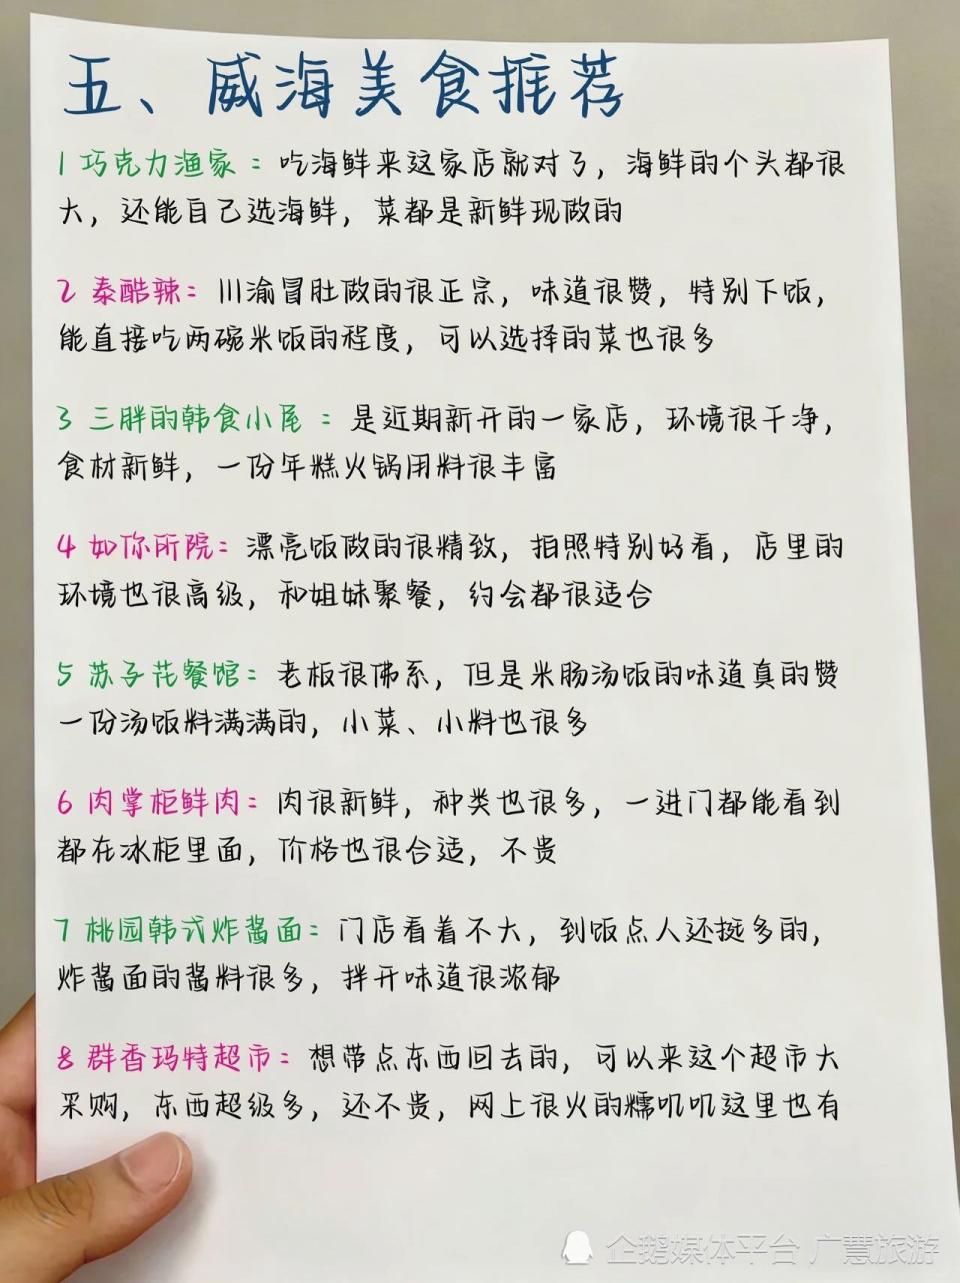 五、威海美食推荐
1 巧克力渔家：吃海鲜来这家店就对了，海鲜的个头都很
大，还能自己选海鲜，菜都是新鲜现做的
2 泰酷辣：川渝冒肚做的很正宗，味道很赞，特别下饭，
能直接吃两碗米饭的程度，可以选择的菜也很多
3 三胖的韩食小尾：是近期新开的一家店，环境很干净，
食材新鲜，一份年糕火锅用料很丰富
4 如你所院：漂亮饭做的很精致，拍照特别好看，店里的
环境也很高级，和姐妹聚餐，约会都很适合
5 苏子花餐馆：老板很佛系，但是米肠汤饭的味道真的赞
一份汤饭料满满的，小菜、小料也很多
6 肉掌柜鲜肉：肉很新鲜，种类也很多，一进门都能看到
都在冰柜里面，价格也很合适，不贵
7 桃园韩式炸酱面：门店看着不大，到饭点人还挺多的，
炸酱面的酱料很多，拌开味道很浓郁
8 群香玛特超市：想带点东西回去的，可以来这个超市大
采购，东西超级多，还不贵，网上很火的糯叽叽这里也有
企鹅媒体平台 广慧旅游